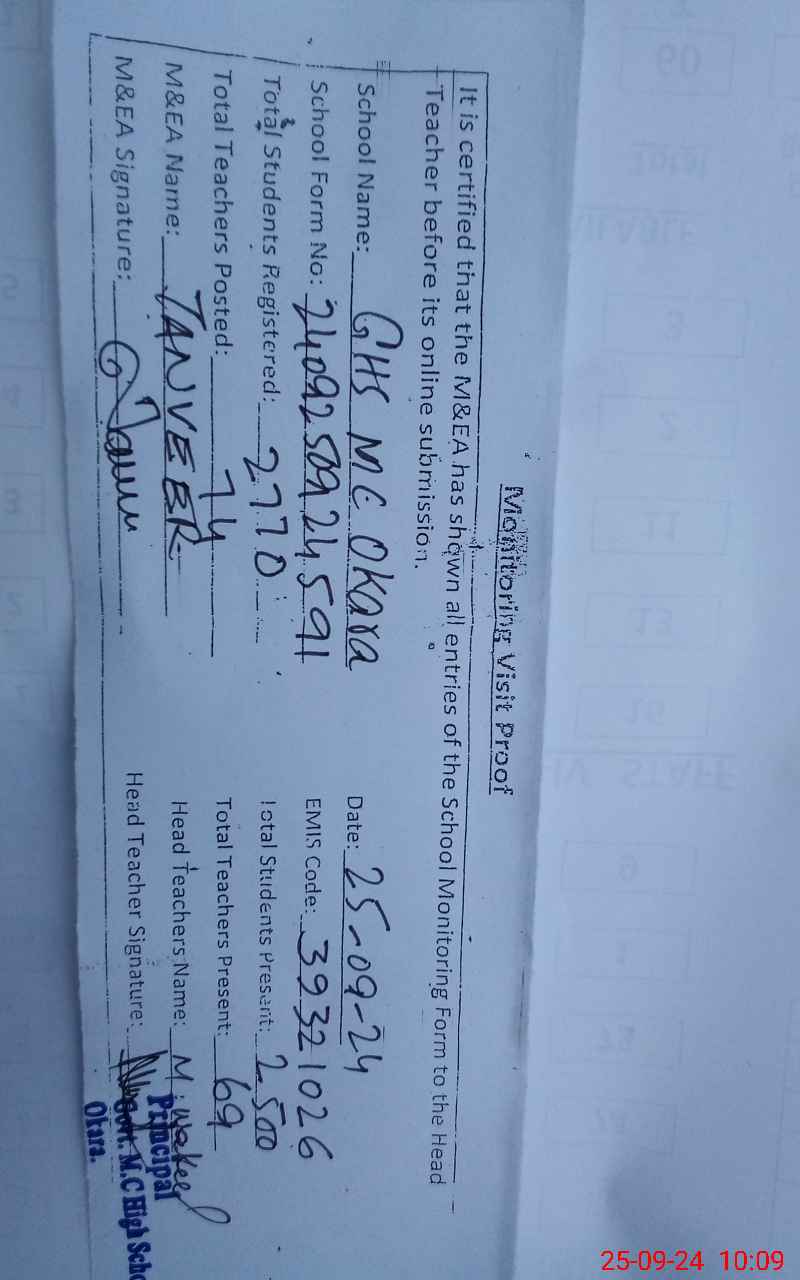 Monitoring Visit Proof
It is certified that the M&EA has shown all entries of the School Monitoring Form to the Head
Teacher before its online submission.
School Name: GHS MC Okara Date: 25-09-24
School Form No: 2409250924591 EMIS Code: 39321026
Total Students Registered: 2770 Total Students Present: 2500
Total Teachers Posted: 74 Total Teachers Present: 69
M&EA Name: TANVEER Head Teachers Name: M. Wakeel
M&EA Signature: Head Teacher Signature:
Principal
Govt. M.C High Scho
Okara.
25-09-24 10:09